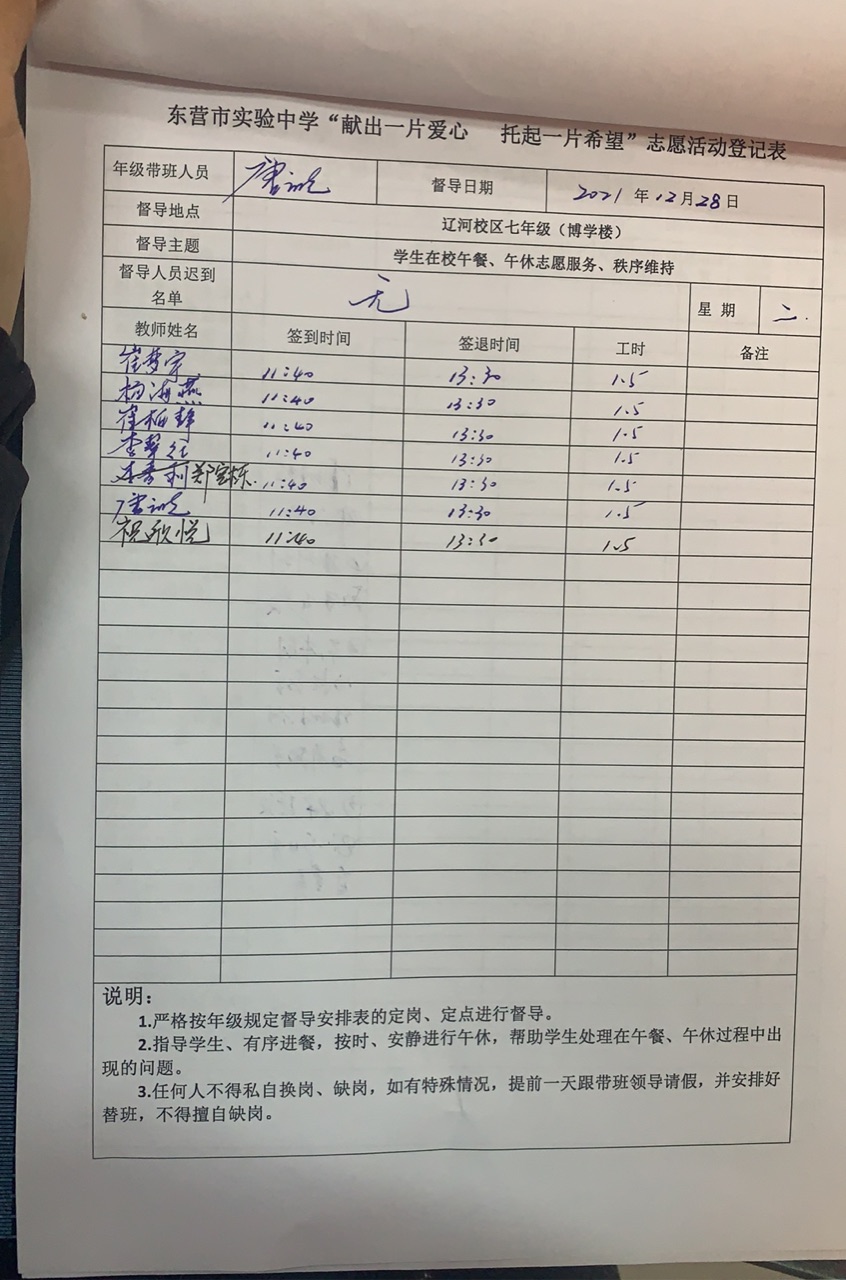 东营市实验中学“献出一片爱心 托起一片希望”志愿活动登记表
年级带班人员 唐 督导日期 2021 年 12 月 28 日
督导地点 辽河校区七年级（博学楼）
督导主题 学生在校午餐、午休志愿服务、秩序维持
督导人员迟到名单 无 星 期 二.
教师姓名 签到时间 签退时间 工时 备注
崔梦宇 11:40 13:30 1.5
杨海燕 11:40 13:30 1.5
崔柏静 11:40 13:30 1.5
李翠红 11:40 13:30 1.5
郑宝栋. 11:40 13:30 1.5
唐 11:40 13:30 1.5
祝欣悦 11:40 13:30 1.5
说明：
1.严格按年级规定督导安排表的定岗、定点进行督导。
2.指导学生、有序进餐，按时、安静进行午休，帮助学生处理在午餐、午休过程中出
现的问题。
3.任何人不得私自换岗、缺岗，如有特殊情况，提前一天跟带班领导请假，并安排好
替班，不得擅自缺岗。